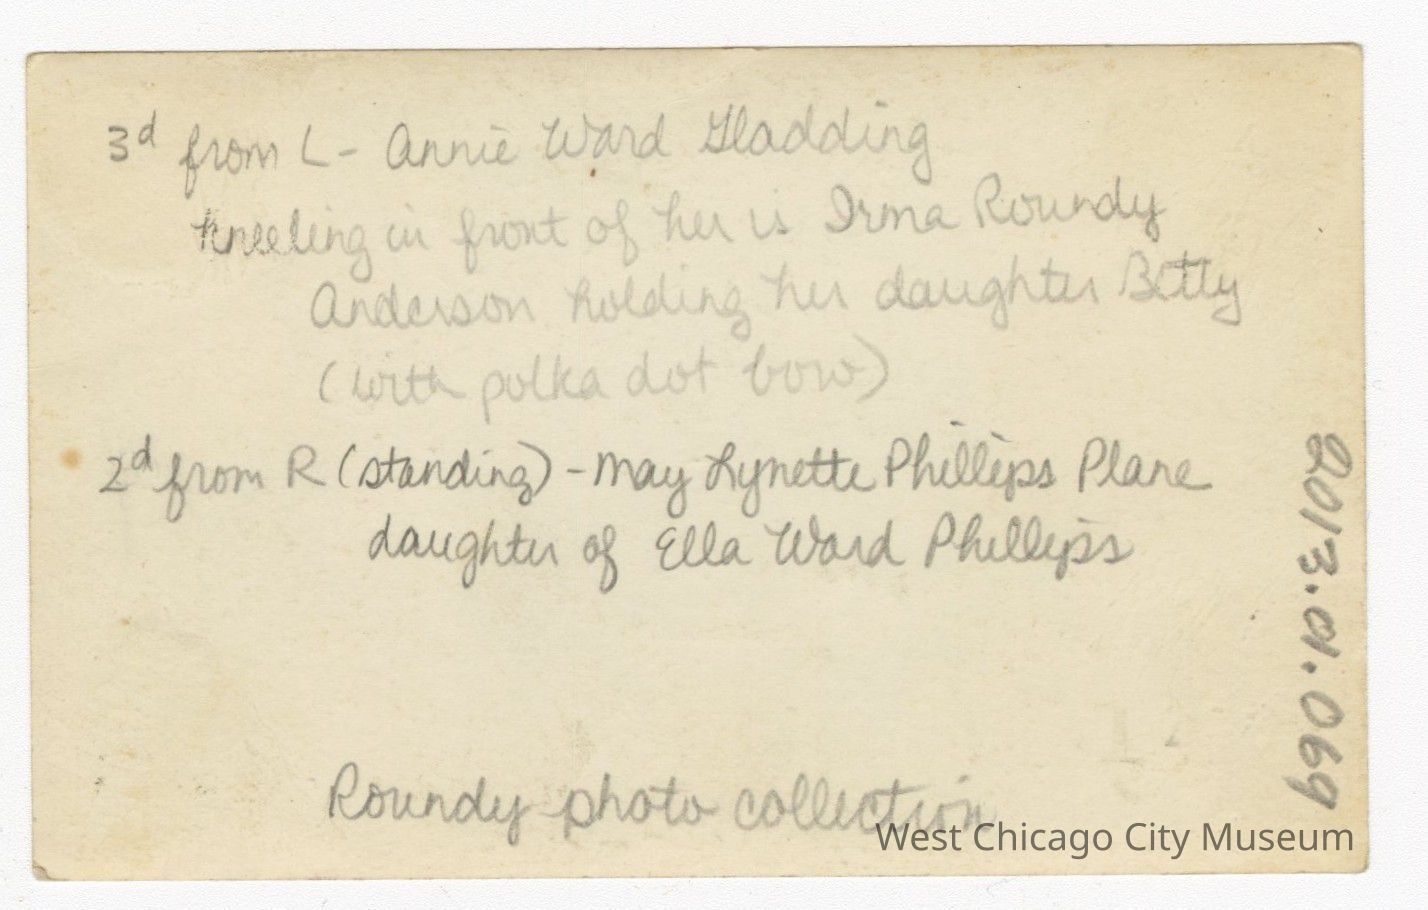 3d from L - Annie Ward Gladding
kneeling in front of her is Irma Roundy
Anderson holding her daughter Betty
(with polka dot bow)
2d from R (standing) - May Lynette Phillips Plane
daughter of Ella Ward Phillips
Roundy photo collection
2013.01.069
West Chicago City Museum